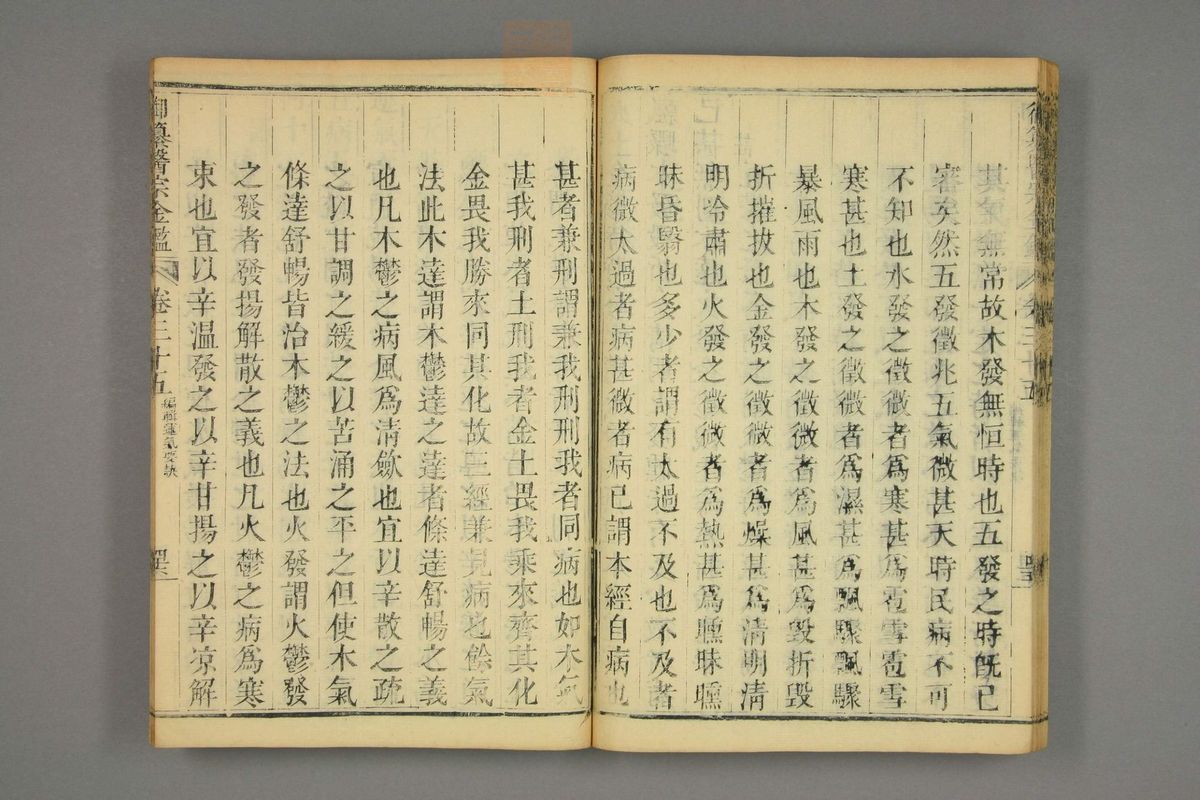 其氣無常故木發無恒時也五發之時旣已
審矣然五發徵兆五氣微甚天時民病不可
不知也水發之徵微者爲寒甚爲雹雪雹雪
寒甚也土發之徵微者爲濕甚爲飄驟飄驟
暴風雨也木發之徵微者爲風甚爲毀折毀
折摧拔也金發之徵微者爲燥甚爲清明清
明冷肅也火發之徵微者爲熱甚爲曛昧曛
昧昏翳也多少者謂有太過不及也不及者
病微太過者病甚微者病已謂本經自病也
甚者兼刑謂兼我刑刑我者同病也如木氣
甚我刑者土刑我者金土畏我乘來齊其化
金畏我勝來同其化故三經兼見病也餘氣
法此木達謂木鬱達之達者條達舒暢之義
也凡木鬱之病風爲清斂也宜以辛散之疏
之以甘調之緩之以苦涌之平之但使木氣
條達舒暢皆治木鬱之法也火發謂火鬱發
之發者發揚解散之義也凡火鬱之病爲寒
束也宜以辛溫發之以辛甘揚之以辛凉解
御纂醫宗金鑑
卷三十五
編輯運氣要訣